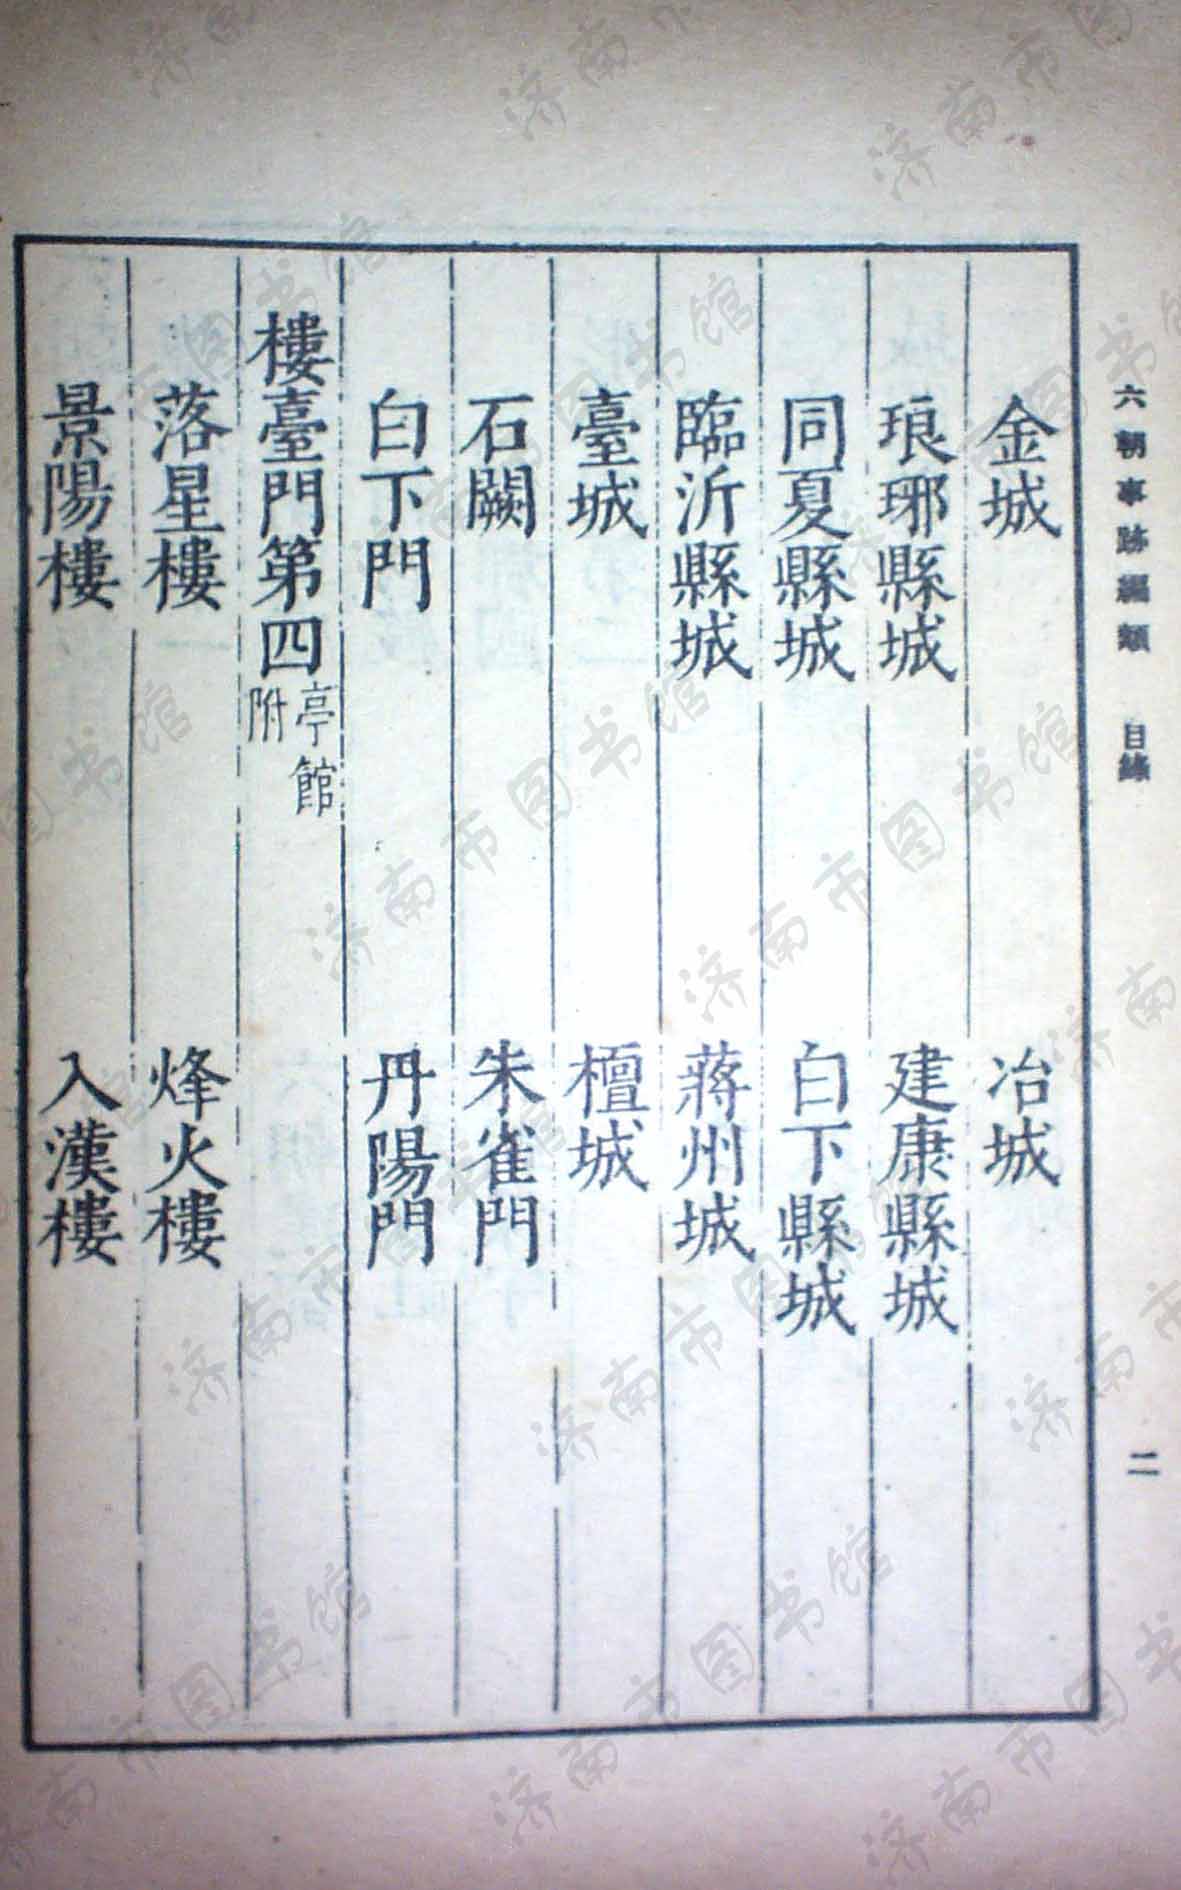 六朝事跡編類　目錄　二
金城　冶城
琅琊縣城　建康縣城
同夏縣城　白下縣城
臨沂縣城　蔣州城
臺城　檀城
石闕　朱雀門
白下門　丹陽門
樓臺門第四　亭館附
落星樓　烽火樓
景陽樓　入漢樓
济南市图书馆